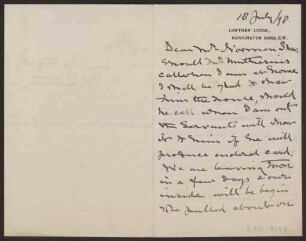 18 July/98
LOWTHER LODGE,
KENSINGTON GORE, S.W.
Dear Mr. Norman Shaw
Should Mr. Muthesius
call when I am at home
I shall be glad to show
him the house, should
he call when I am out
the servants will show
it to him if he will
produce enclosed card.
We are leaving town
in a few days &
inside will be begin
the about